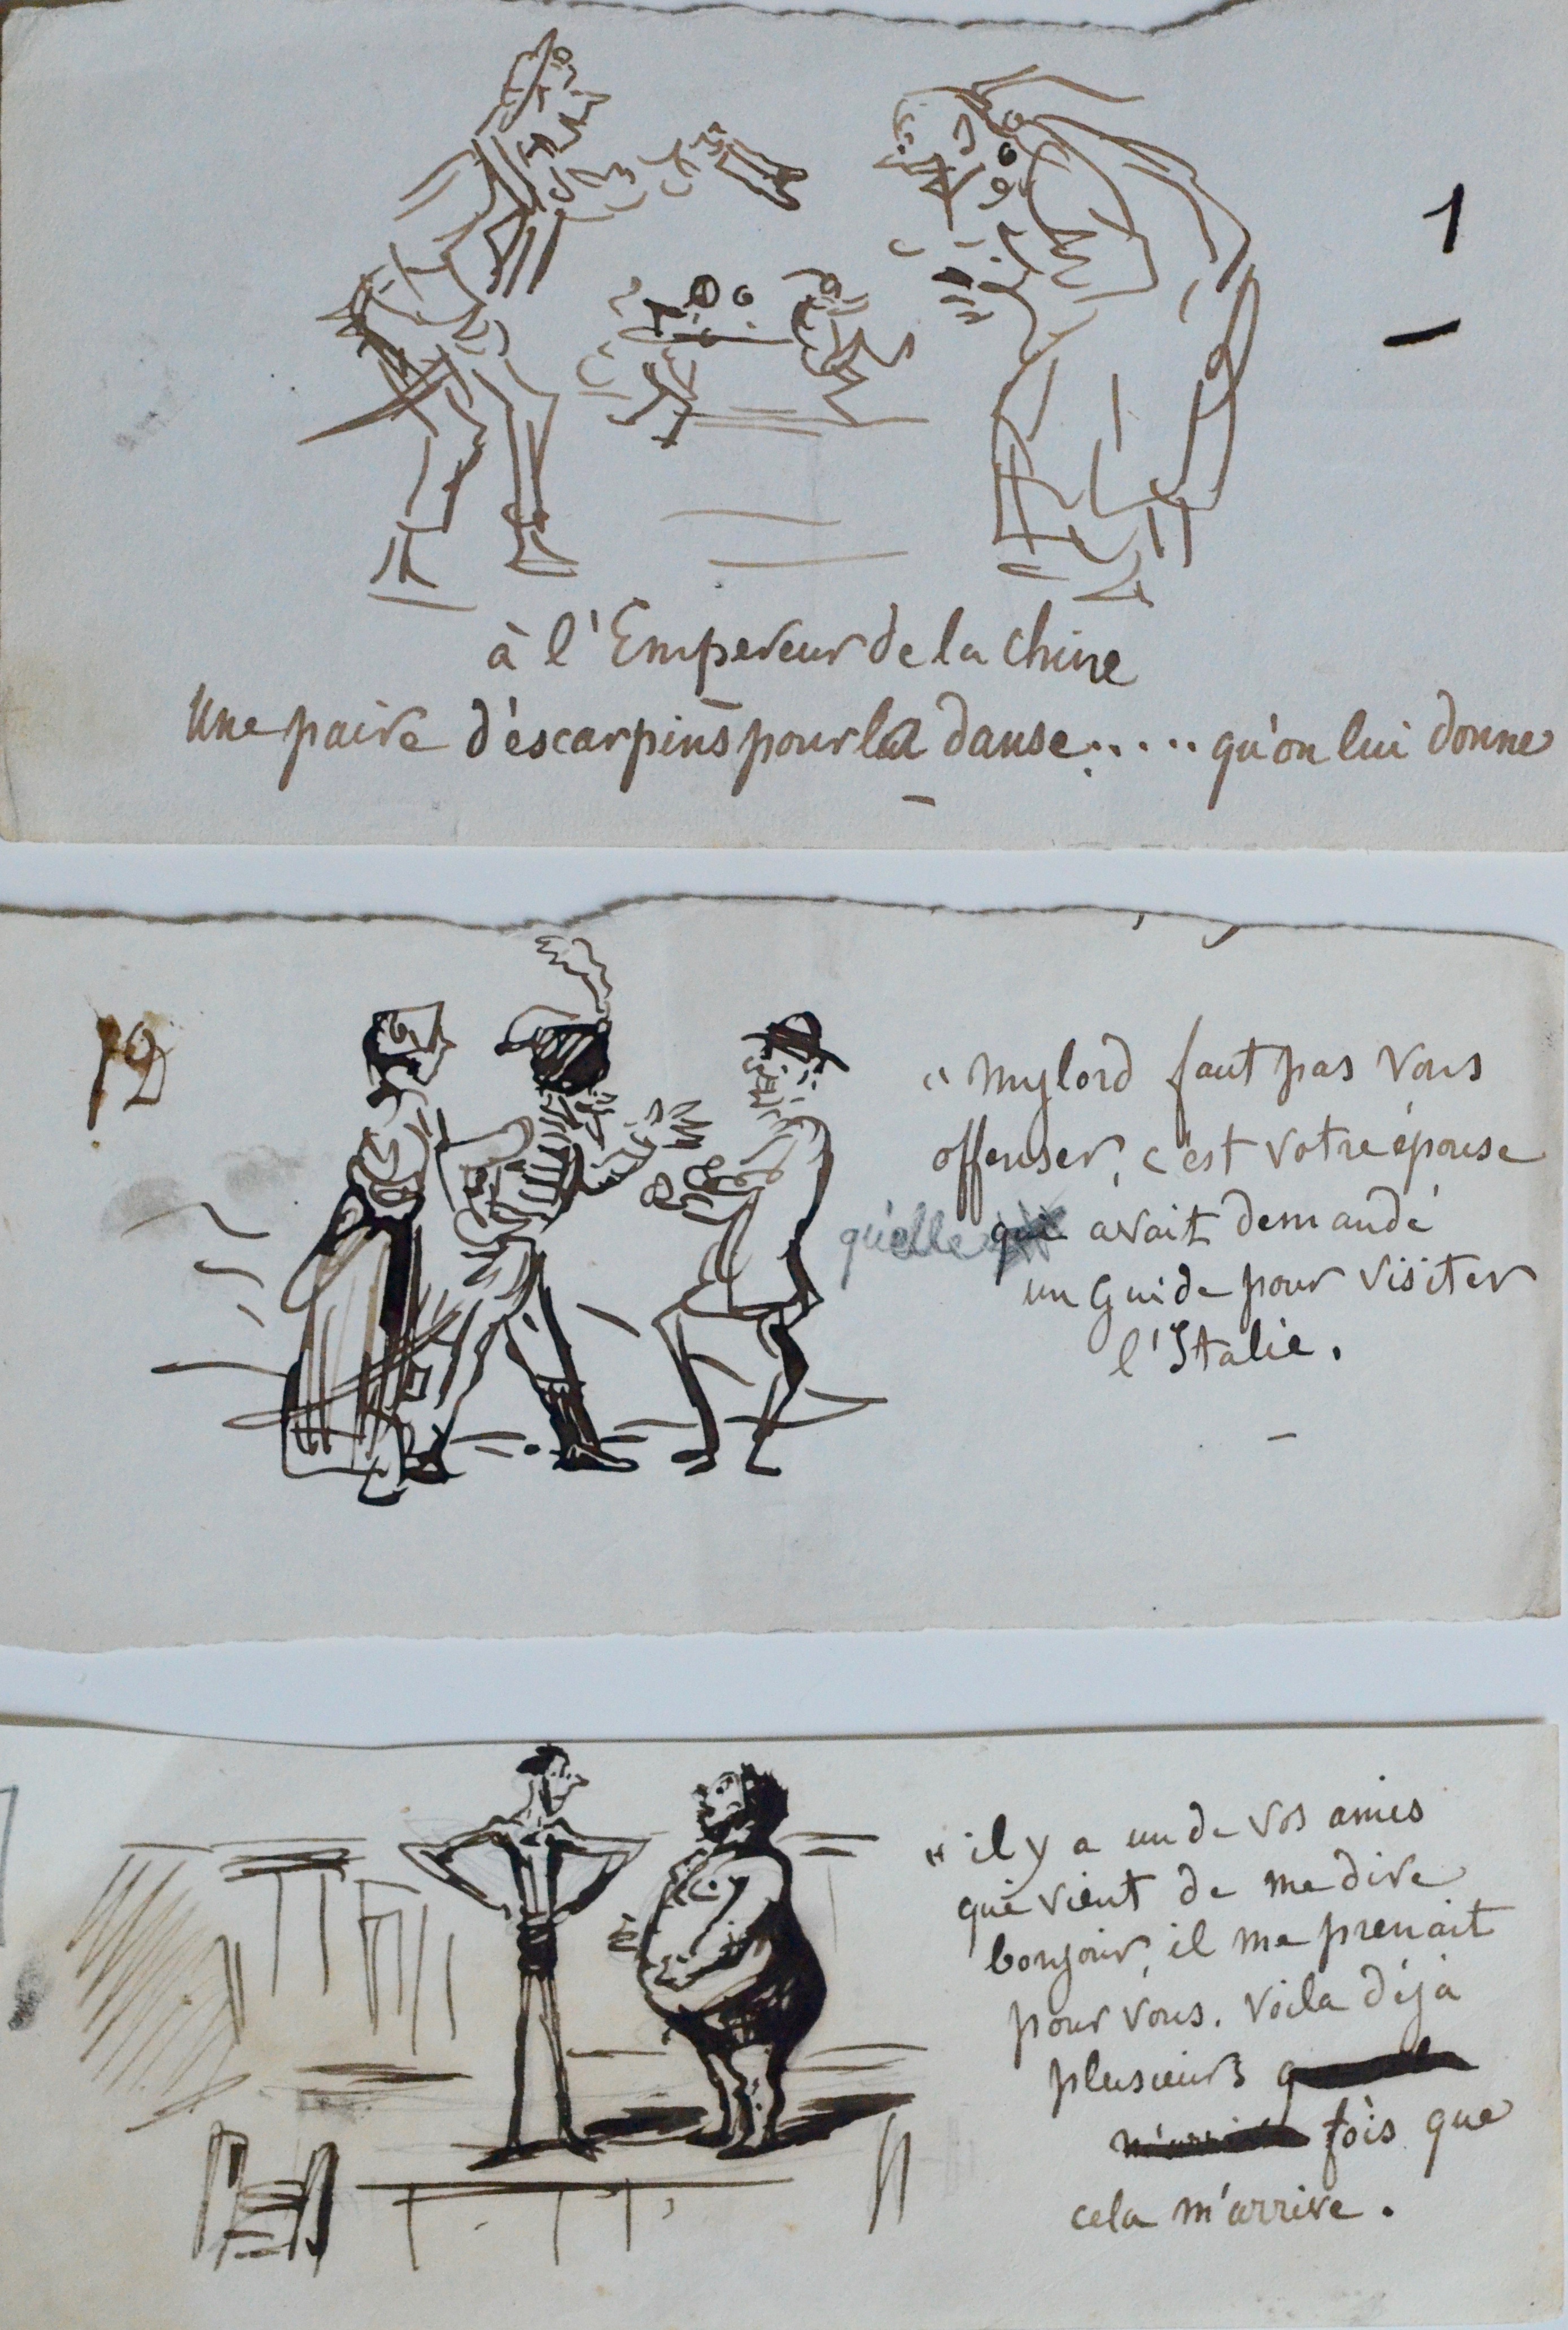 1
à l'Empereur de la chine
Une paire d'escarpins pour la danse..... qu'on lui donne
12
" Mylord faut pas vous
offenser, c'est votre épouse
qu'elle qui avait demandé
un Guide pour visiter
l'Italie.
" il y a un de vos amis
qui vient de me dire
bonjour, il me prenait
pour vous. Voila déja
plusieurs
fois que
cela m'arrive.